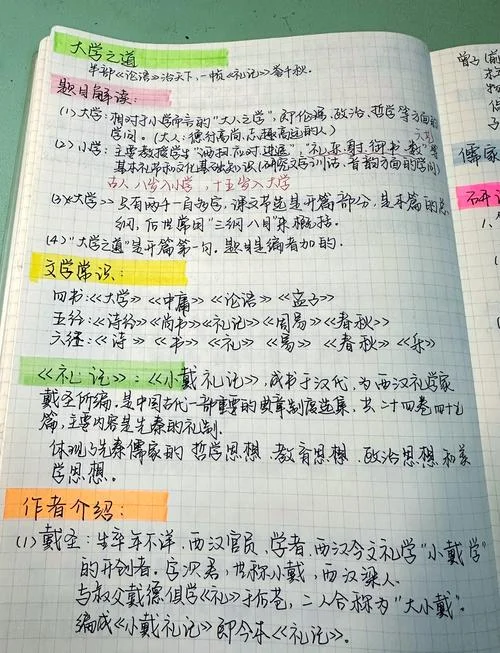 大学之道
半部《论语》治天下，一帧《礼记》香千秋。
题目解读：
(1) 大学：相对于小学而言的"大人之学"，即伦理、政治、哲学等方面的
学问。（大人：德行高尚、志趣高远的人）
六艺
(2) 小学：主要教授学生"洒扫应对进退"，"礼、乐、射、御、书、数"等
基本礼节和文化基础知识（研究文字训诂、音韵方面的学问）
古人八岁入小学，十五岁入大学
(3)《大学》只有两千一百字，课文节选是开篇部分，是本篇的总
纲，后世常用"三纲八目"来概括。
(4)"大学之道"是开篇第一句。题目是编者加的。
文学常识：
四书：《大学》《中庸》《论语》《孟子》
五经：《诗经》《尚书》《礼记》《周易》《春秋》
六经：《诗》《书》《礼》《易》《春秋》《乐》
《礼记》：《小戴礼记》，成书于汉代，为西汉礼学家
戴圣所编，是中国古代一部重要的典章制度选集，共二十四卷四十九
篇，主要内容是先秦的礼制。
体现了先秦儒家的哲学思想、教育思想、政治思想和美
学思想。
作者介绍：
(1) 戴圣：生卒年不详，西汉官员、学者、西汉今文礼学"小戴学"
的开创者。字次君，世称小戴，西汉梁人。
与叔父戴德俱学《礼》于后苍，二人合称为"大小戴"。
编成《小戴礼记》即今本《礼记》。
曾子（前
儒家
研读
1、